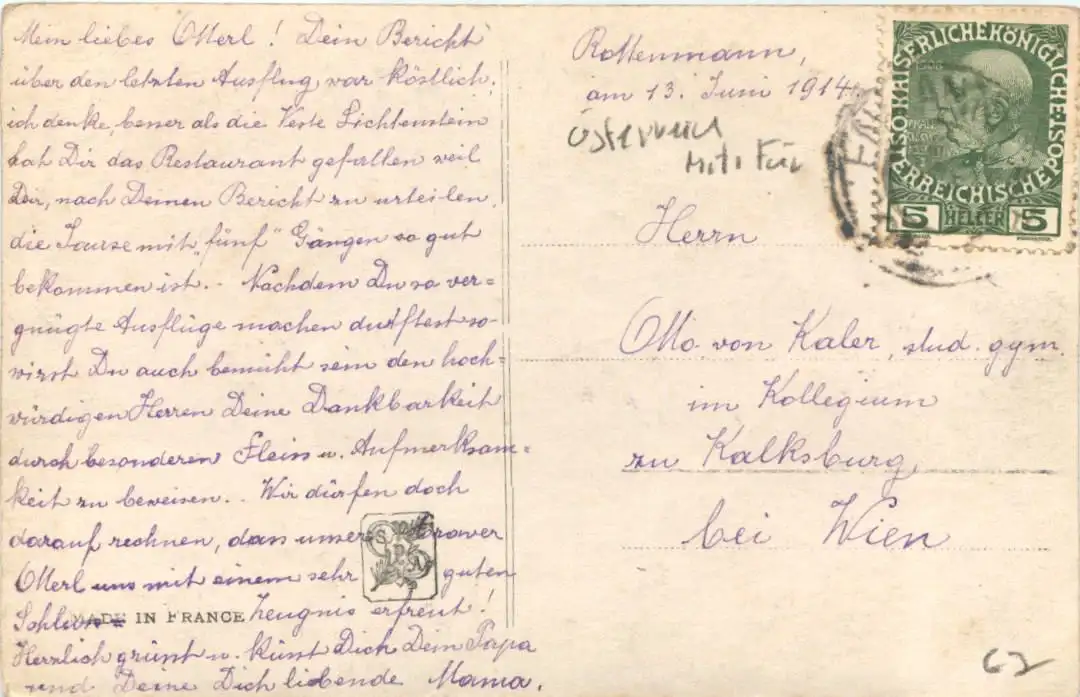 Mein liebes Otterl! Dein Bericht
über den letzten Ausflug war köstlich,
ich denke, besser als die Veste Lichtenstein
hat Dir das Restaurant gefallen weil
Dir, nach Deinem Bericht zu urteilen,
die Jause mit „fünf" Gängen so gut
bekommen ist. - Nachdem Du so ver=
gnügte Ausflüge machen durftest so
wirst Du auch bemüht sein den hoch=
würdigen Herren Deine Dankbarkeit
durch besonderen Fleiss u. Aufmerksam=
keit zu beweisen. - Wir dürfen doch
darauf rechnen, dass unser braver
Otterl uns mit einem sehr guten
Schluss Zeugnis erfreut!
Herzlich grüsst u. küsst Dich Dein Papa
und Deine Dich liebende Mama.
MADE IN FRANCE
Rottenmann,
am 13. Juni 1914.
Österreich
Herrn
Otto von Kaler, stud. gym.
im Kollegium
zu Kalksburg
bei Wien
KAISERLICHE KÖNIGLICHE
ÖSTERREICHISCHE POST
1908
5 HELLER 5
62